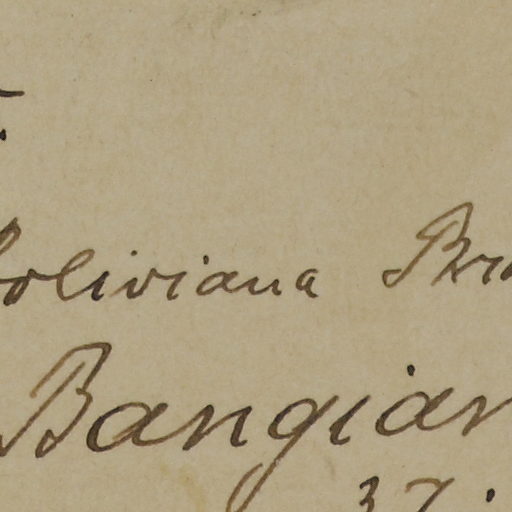 boliviana Bri
Bangian
37.